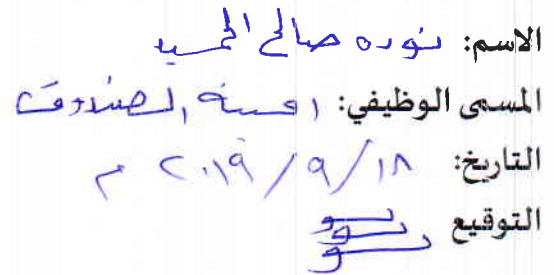 الاسم: نوره صالح الحميد
المسمى الوظيفي: امينة الصندوق
التاريخ: ١٨/٩/٢٠١٩ م
التوقيع